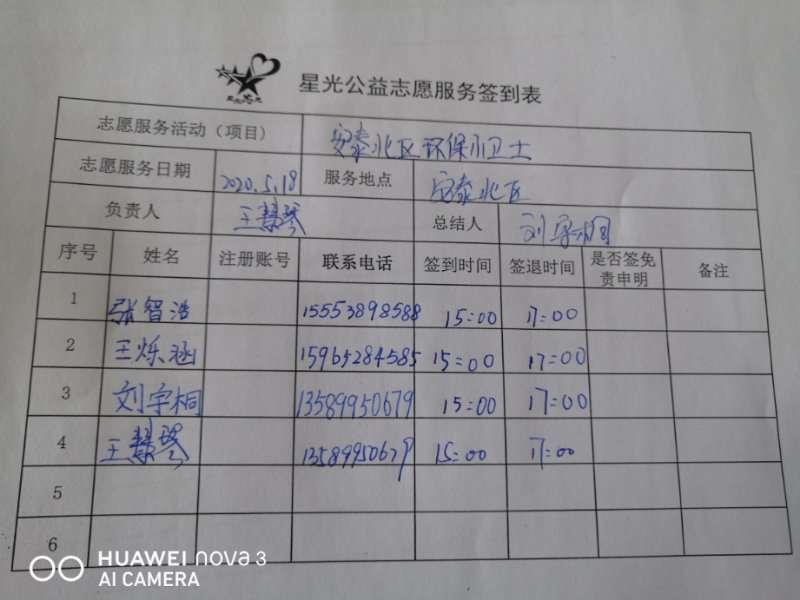 星光公益志愿服务签到表
志愿服务活动（项目） 安泰北区环保小卫士
志愿服务日期 2020.5.18 服务地点 安泰北区
负责人 王慧琴 总结人 刘宇桐
序号 姓名 注册账号 联系电话 签到时间 签退时间 是否签免责申明 备注
1 张智浩 15553898588 15:00 17:00
2 王烁涵 15965284585 15:00 17:00
3 刘宇桐 13589950679 15:00 17:00
4 王慧琴 13589950679 15:00 17:00
5
6
HUAWEI nova 3
AI CAMERA